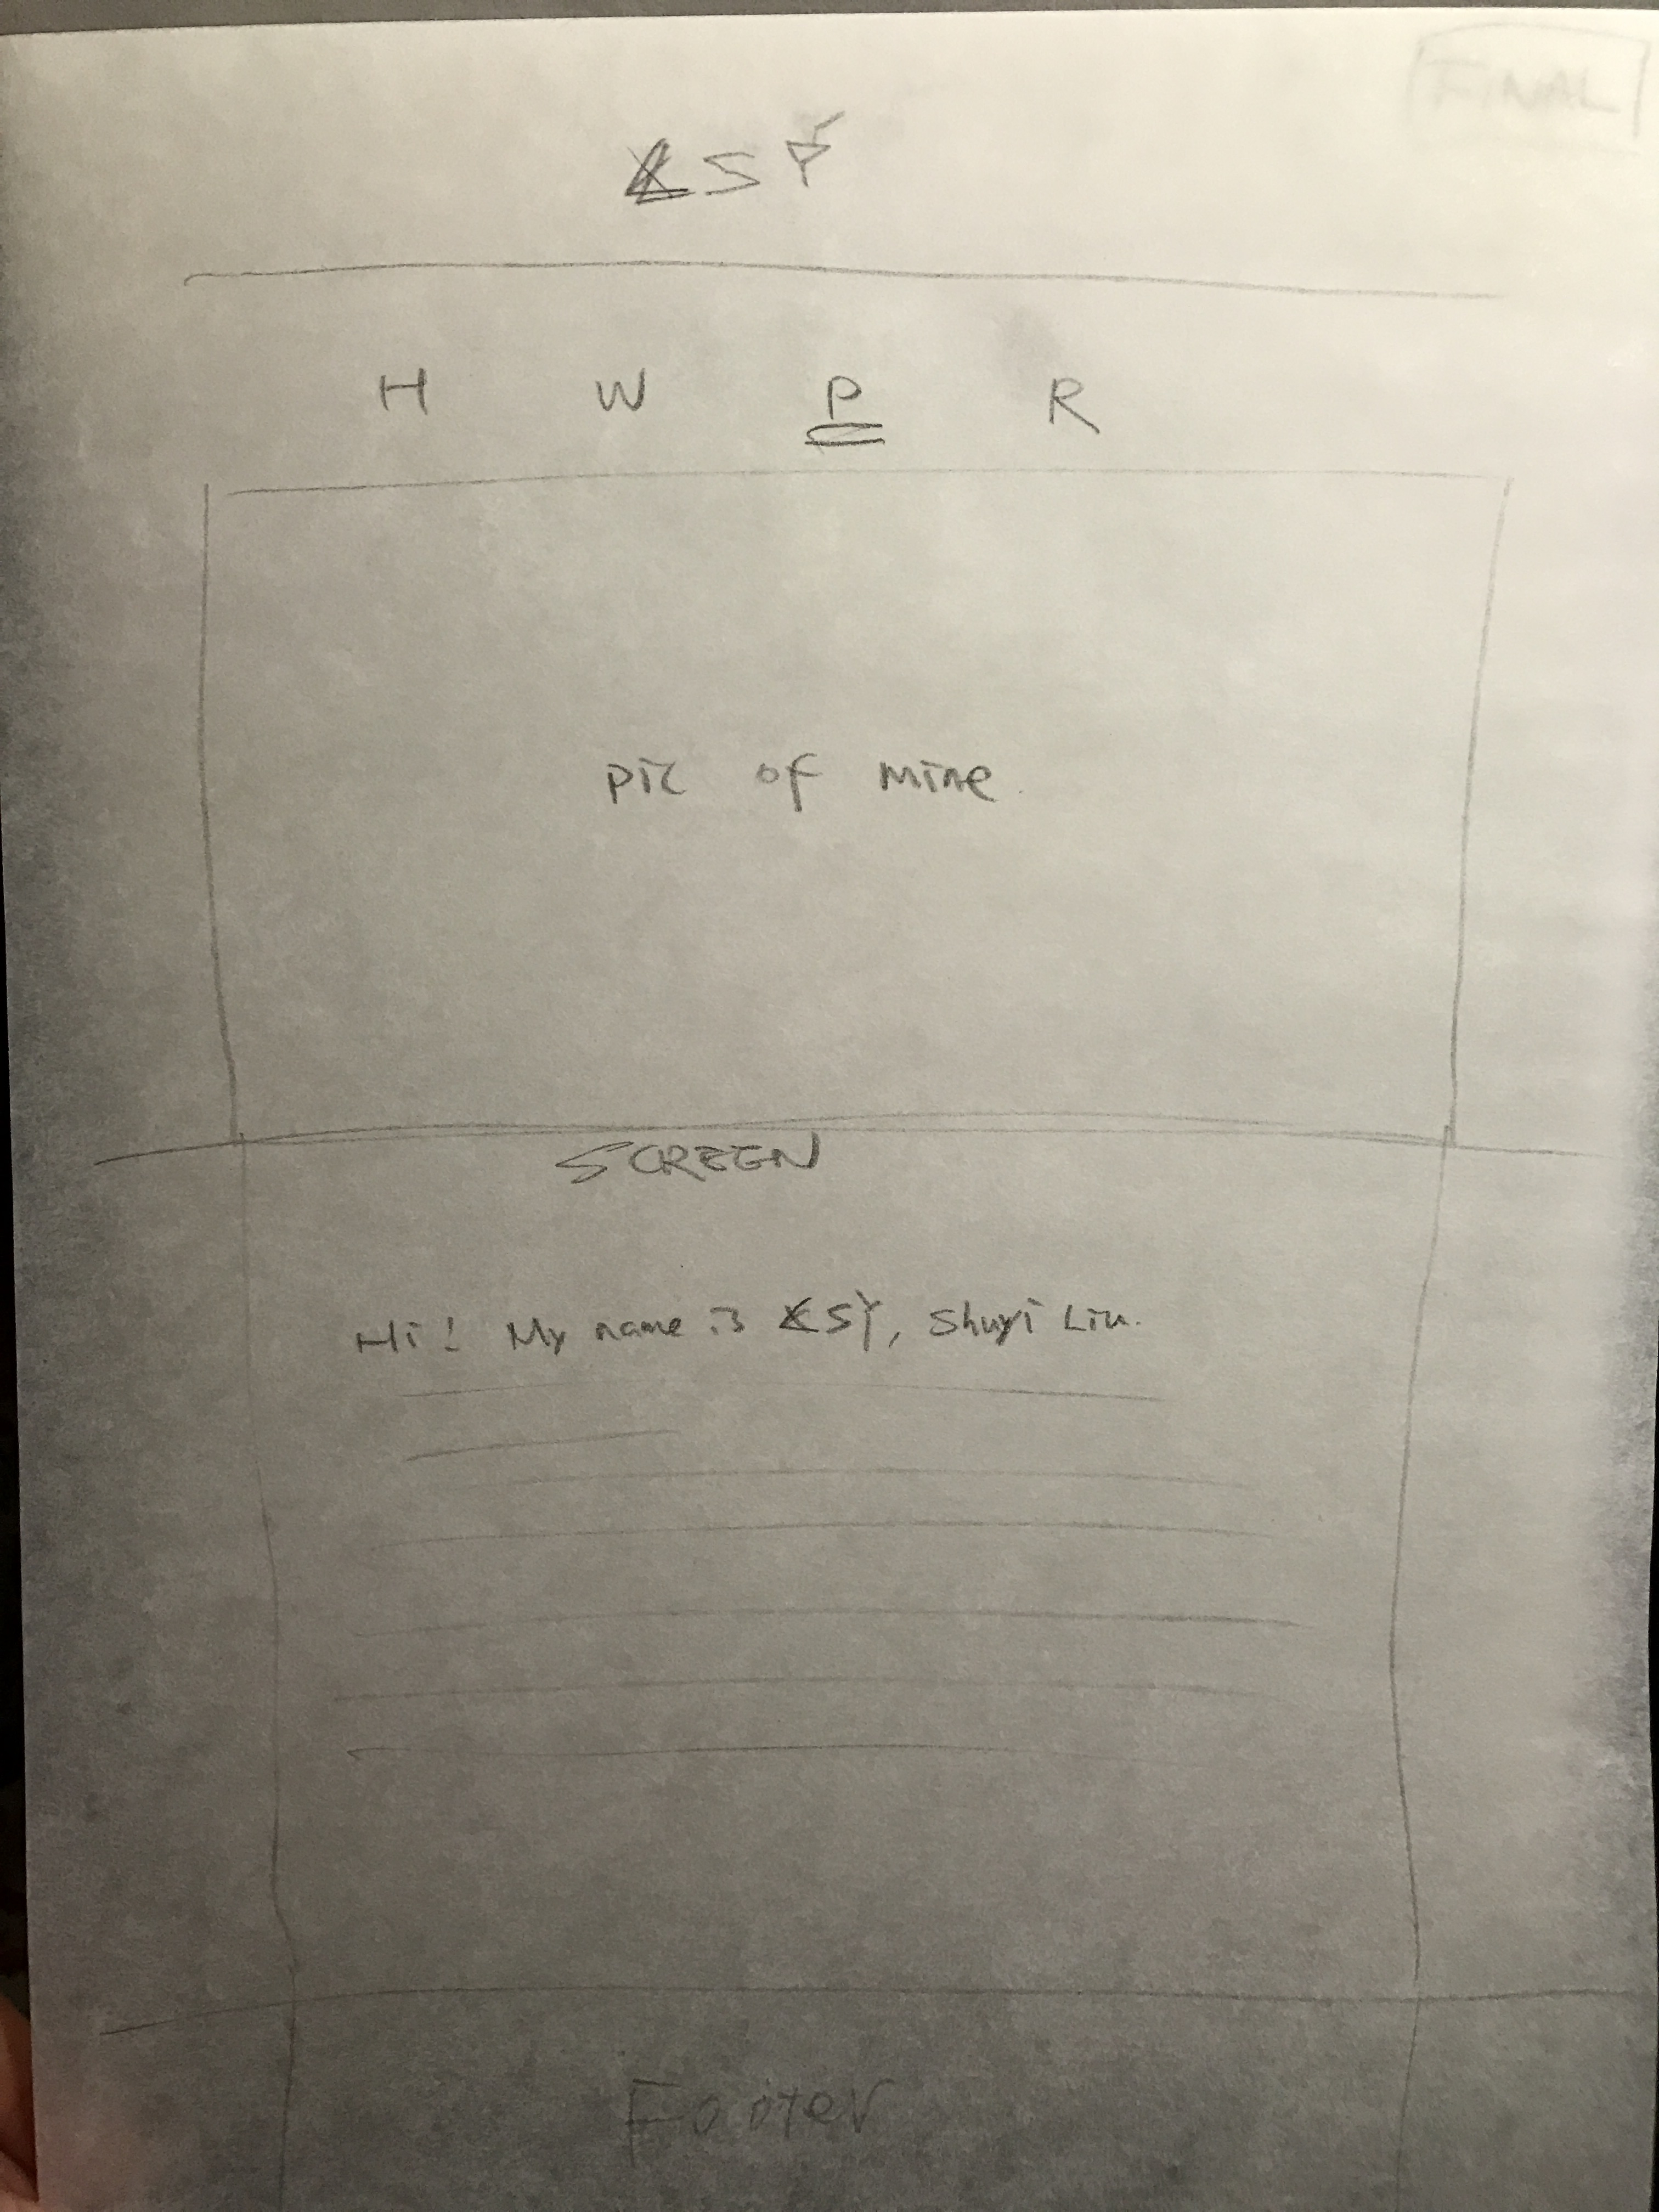 FINAL
LSY
H W P R
pic of mine.
SCREEN
Hi! My name is LSY, Shuyi Liu.
Footer